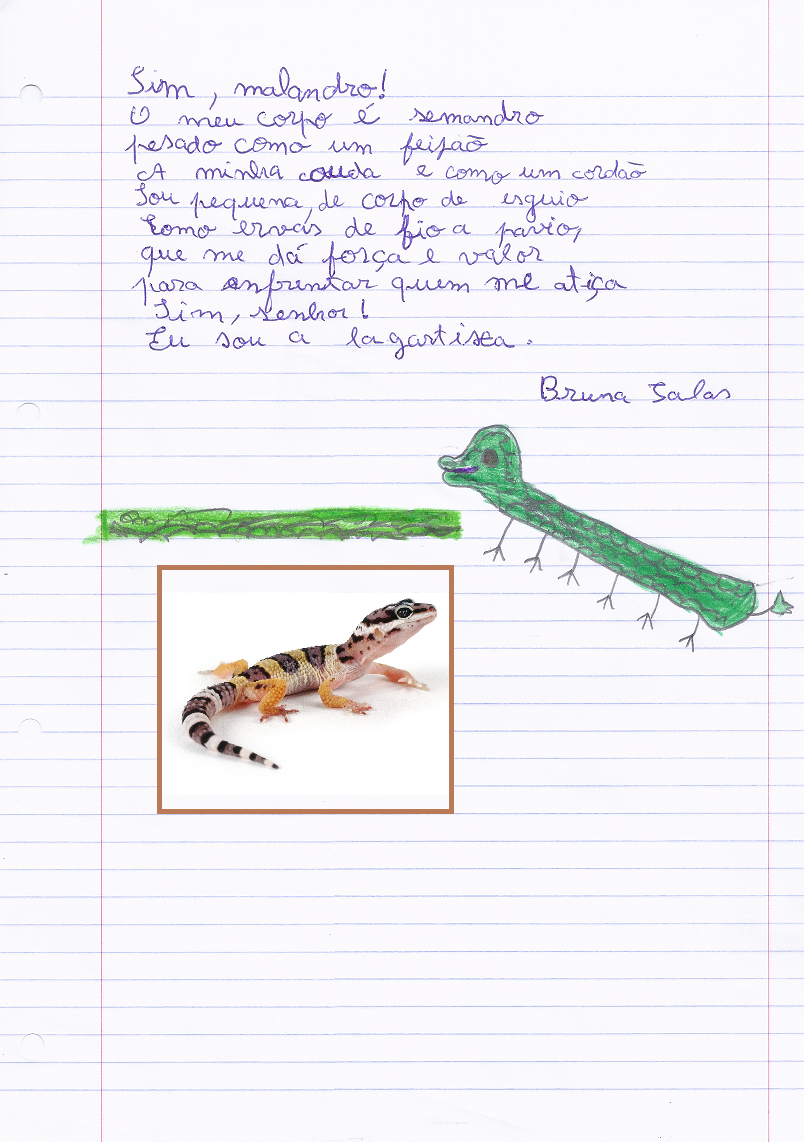 Sim, malandro!
O meu corpo é semandro
pesado como um feijão
A minha couda e como um cordão
Sou pequena, de corpo de esguio
Como ervas de fio a pavio,
que me dá força e valor
para enfrentar quem me atiça
Sim, senhor!
Eu sou a lagartixa.
Bruna Salas